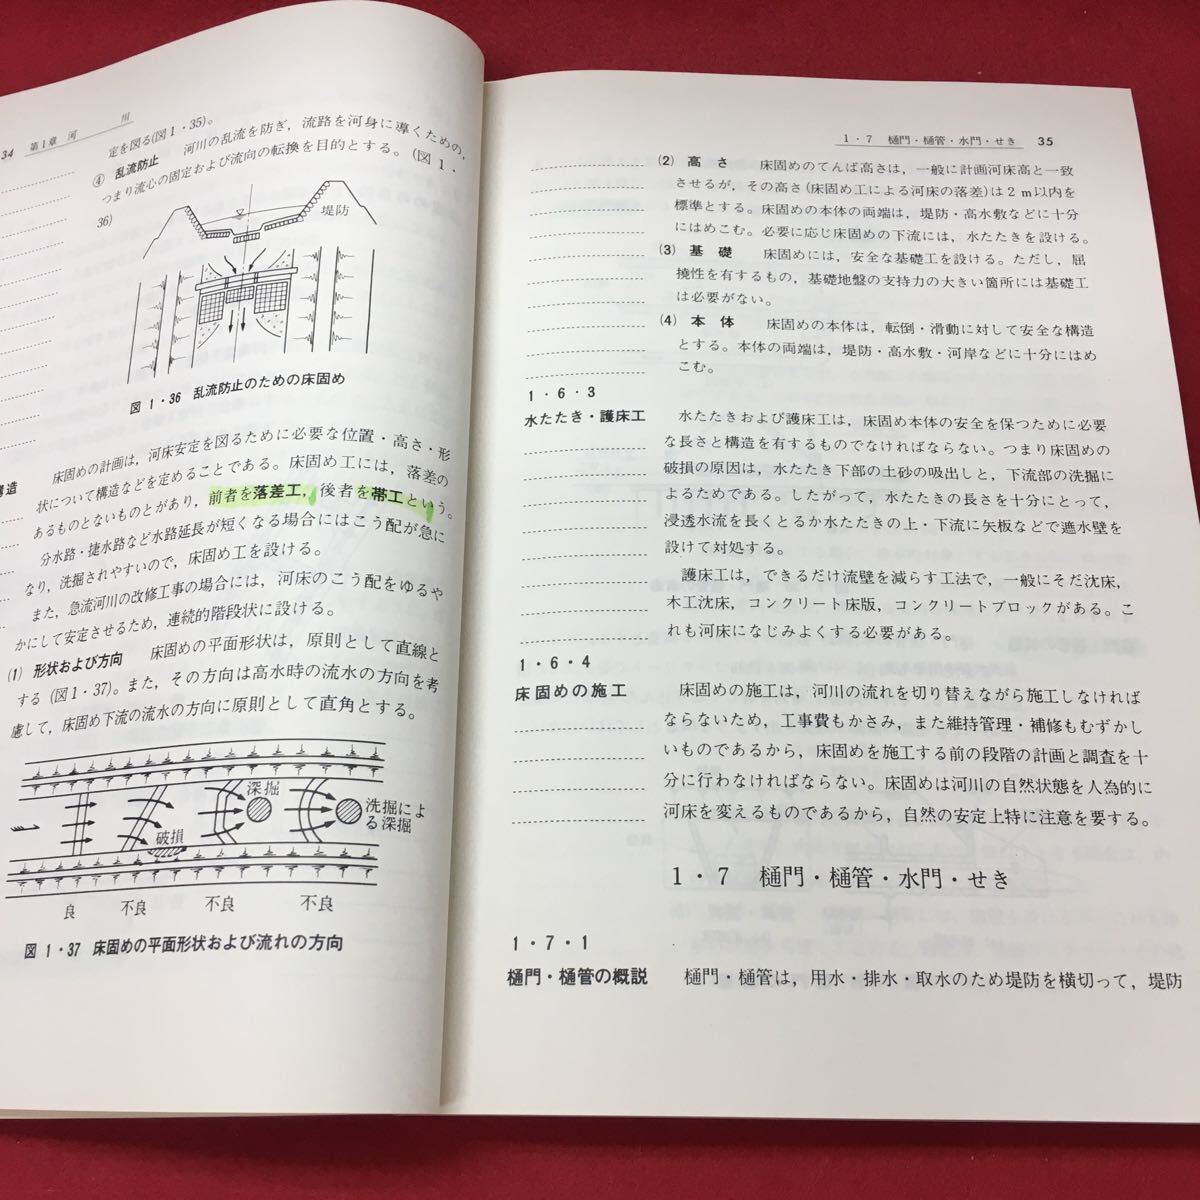 34 第1章 河 川
定を図る(図1・35)。
④ 乱流防止 河川の乱流を防ぎ，流路を河身に導くための，
つまり流心の固定および流向の転換を目的とする。(図1・
36)
堤防
図 1・36 乱流防止のための床固め
構造
床固めの計画は，河床安定を図るために必要な位置・高さ・形
状について構造などを定めることである。床固め工には，落差の
あるものとないものとがあり，前者を落差工，後者を帯工という。
分水路・捷水路など水路延長が短くなる場合にはこう配が急に
なり，洗掘されやすいので，床固め工を設ける。
また，急流河川の改修工事の場合には，河床のこう配をゆるや
かにして安定させるため，連続的階段状に設ける。
(1) 形状および方向 床固めの平面形状は，原則として直線と
する (図1・37)。また，その方向は高水時の流水の方向を考
慮して，床固め下流の流水の方向に原則として直角とする。
深掘
洗掘によ
る深掘
破損
良 不良 不良 不良
図 1・37 床固めの平面形状および流れの方向
1・7 樋門・樋管・水門・せき 35
(2) 高さ 床固めのてんば高さは，一般に計画河床高と一致
させるが，その高さ(床固め工による河床の落差)は2m以内を
標準とする。床固めの本体の両端は，堤防・高水敷などに十分
にはめこむ。必要に応じ床固めの下流には，水たたきを設ける。
(3) 基礎 床固めには，安全な基礎工を設ける。ただし，屈
撓性を有するもの，基礎地盤の支持力の大きい箇所には基礎工
は必要がない。
(4) 本体 床固めの本体は，転倒・滑動に対して安全な構造
とする。本体の両端は，堤防・高水敷・河岸などに十分にはめ
こむ。
1・6・3
水たたき・護床工
水たたきおよび護床工は，床固め本体の安全を保つために必要
な長さと構造を有するものでなければならない。つまり床固めの
破損の原因は，水たたき下部の土砂の吸出しと，下流部の洗掘に
よるためである。したがって，水たたきの長さを十分にとって，
浸透水流を長くとるか水たたきの上・下流に矢板などで遮水壁を
設けて対処する。
護床工は，できるだけ流壁を減らす工法で，一般にそだ沈床，
木工沈床，コンクリート床版，コンクリートブロックがある。こ
れも河床になじみよくする必要がある。
1・6・4
床固めの施工
床固めの施工は，河川の流れを切り替えながら施工しなければ
ならないため，工事費もかさみ，また維持管理・補修もむずかし
いものであるから，床固めを施工する前の段階の計画と調査を十
分に行わなければならない。床固めは河川の自然状態を人為的に
河床を変えるものであるから，自然の安定上特に注意を要する。
1・7 樋門・樋管・水門・せき
1・7・1
樋門・樋管の概説
樋門・樋管は，用水・排水・取水のため堤防を横切って，堤防